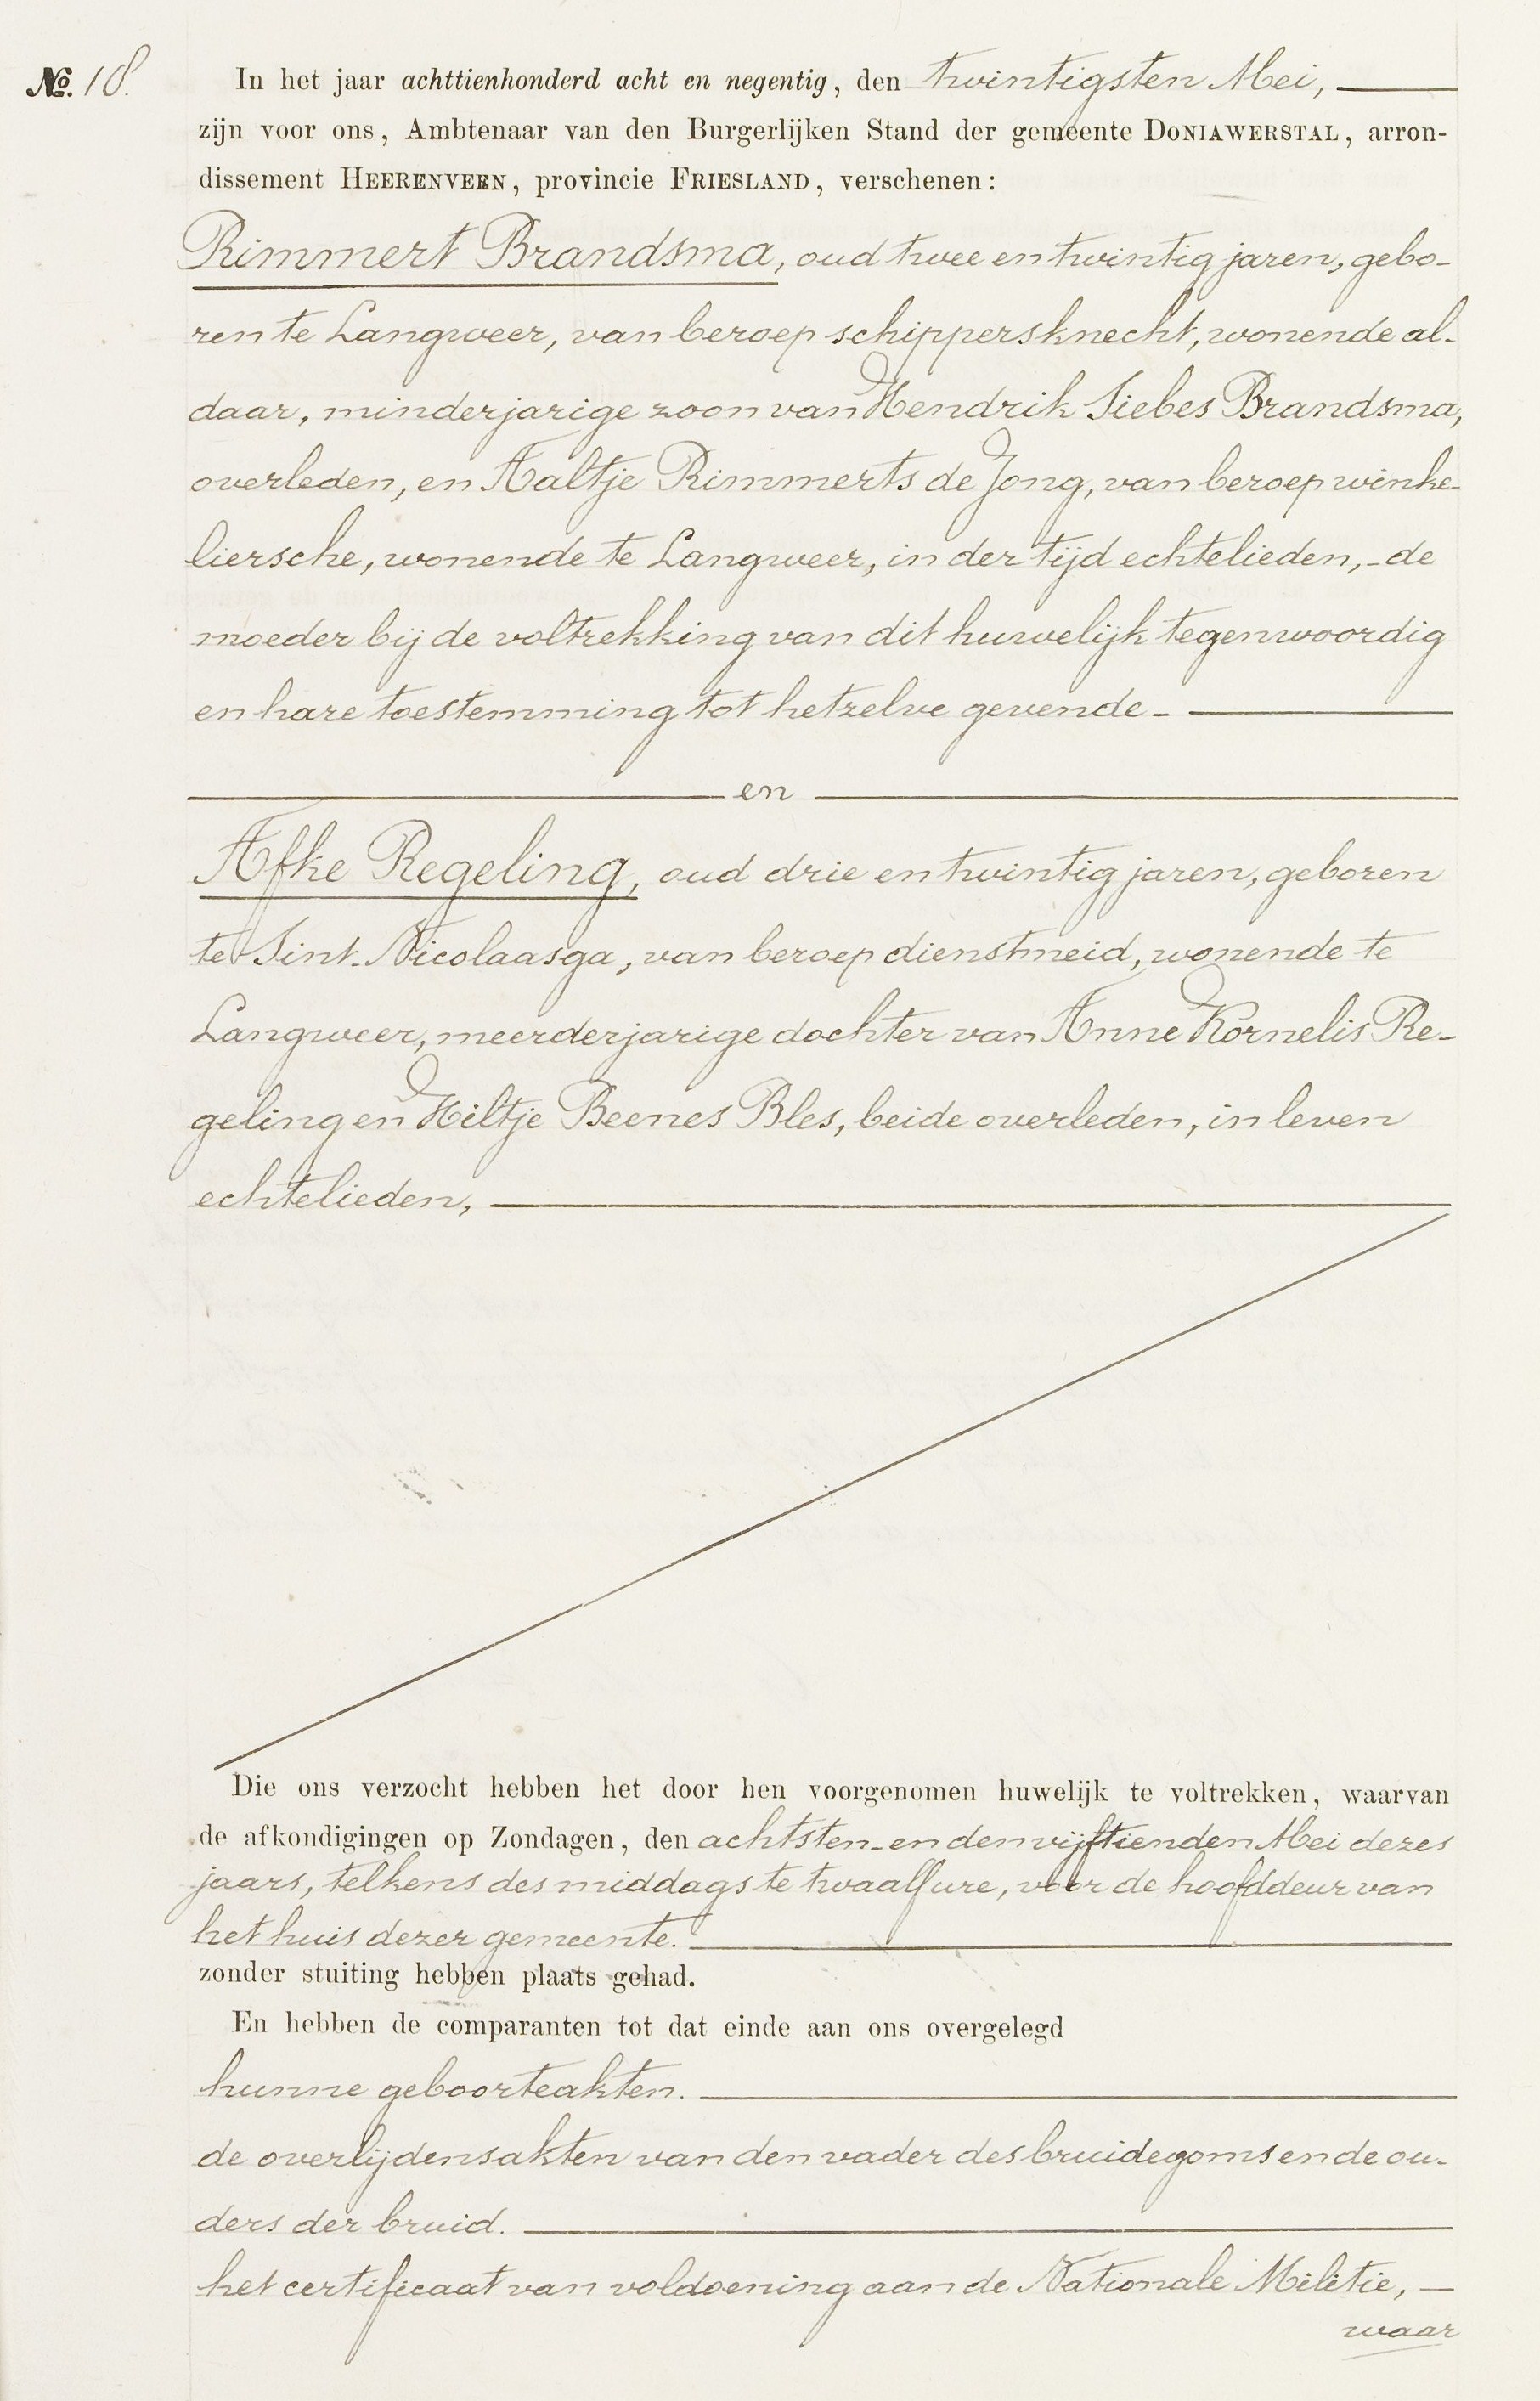 No. 18. In het jaar achttienhonderd acht en negentig, den twintigsten Mei,
zijn voor ons, Ambtenaar van den Burgerlijken Stand der gemeente DONIAWERSTAL, arron-
dissement HEERENVEEN, provincie FRIESLAND, verschenen:
Rimmert Brandsma, oud twee en twintig jaren, gebo-
ren te Langweer, van beroep schippersknecht, wonende al-
daar, minderjarige zoon van Hendrik Siebes Brandsma,
overleden, en Aaltje Rimmerts de Jong, van beroep winke-
liersche, wonende te Langweer, in der tijd echtelieden, - de
moeder bij de voltrekking van dit huwelijk tegenwoordig
en hare toestemming tot hetzelve gevende -
en
Afke Regeling, oud drie en twintig jaren, geboren
te Sint-Nicolaasga, van beroep dienstmeid, wonende te
Langweer, meerderjarige dochter van Anne Kornelis Re-
geling en Hiltje Beenes Bles, beide overleden, in leven
echtelieden,
Die ons verzocht hebben het door hen voorgenomen huwelijk te voltrekken, waarvan
de afkondigingen op Zondagen, den achtsten- en den vijftienden Mei dezes
jaars, telkens des middags te twaalf ure, voor de hoofddeur van
het huis dezer gemeente.
zonder stuiting hebben plaats gehad.
En hebben de comparanten tot dat einde aan ons overgelegd
hunne geboorteakten.
de overlijdensakten van den vader des bruidegoms en de ou-
ders der bruid.
het certificaat van voldoening aan de Nationale Militie, -
waar